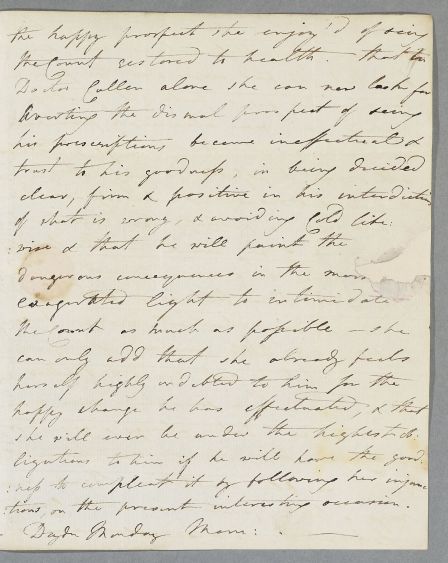 the happy prospect she enjoy'd of seing
the Count restored to health. that
Doctor Cullen alone she can now look for
Averting the dismal prospect of seing
his prescriptions become ineffectual &
trust to his goodness, in being decided
clear, firm & positive in his interdiction
of what is wrong, & avoiding Cold like
:wise & that he will paint the
dangerous consequences in the most
exagerated light to intimidate
the Count as much as possible – she
can only add that she already feels
herself highly indebted to him for the
happy change he has effectuated, & that
she will ever be under the highest ob
ligations to him if he will have the good
:ness to compleat it by following her injunc
:tions on the present interesting occasion.
Monday Morn: